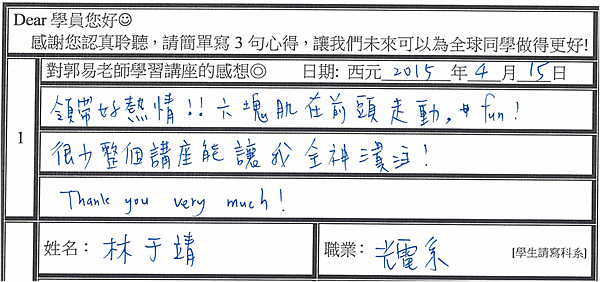 Dear 學員您好☺
感謝您認真聆聽，請簡單寫 3 句心得，讓我們未來可以為全球同學做得更好!
對郭易老師學習講座的感想◎ 日期: 西元 2015 年 4 月 15 日
1
領帶好熱情!! 六塊肌在前頭走動, 中 fun!
很少整個講座能讓我全神灌注!
Thank you very much!
姓名: 林于靖 職業: 光電系 [學生請寫科系]